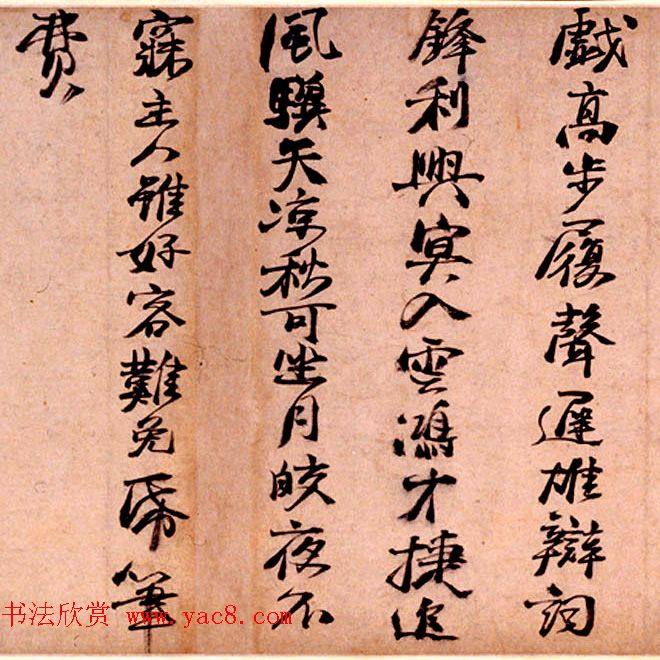 戲高步履聲遲雄辯詞
鋒利興冥入雲鴻才捷追
風驥天凉秋可坐月皎夜不
寐主人雖好客難免帋筆
費
书法欣赏 www.yac8.com